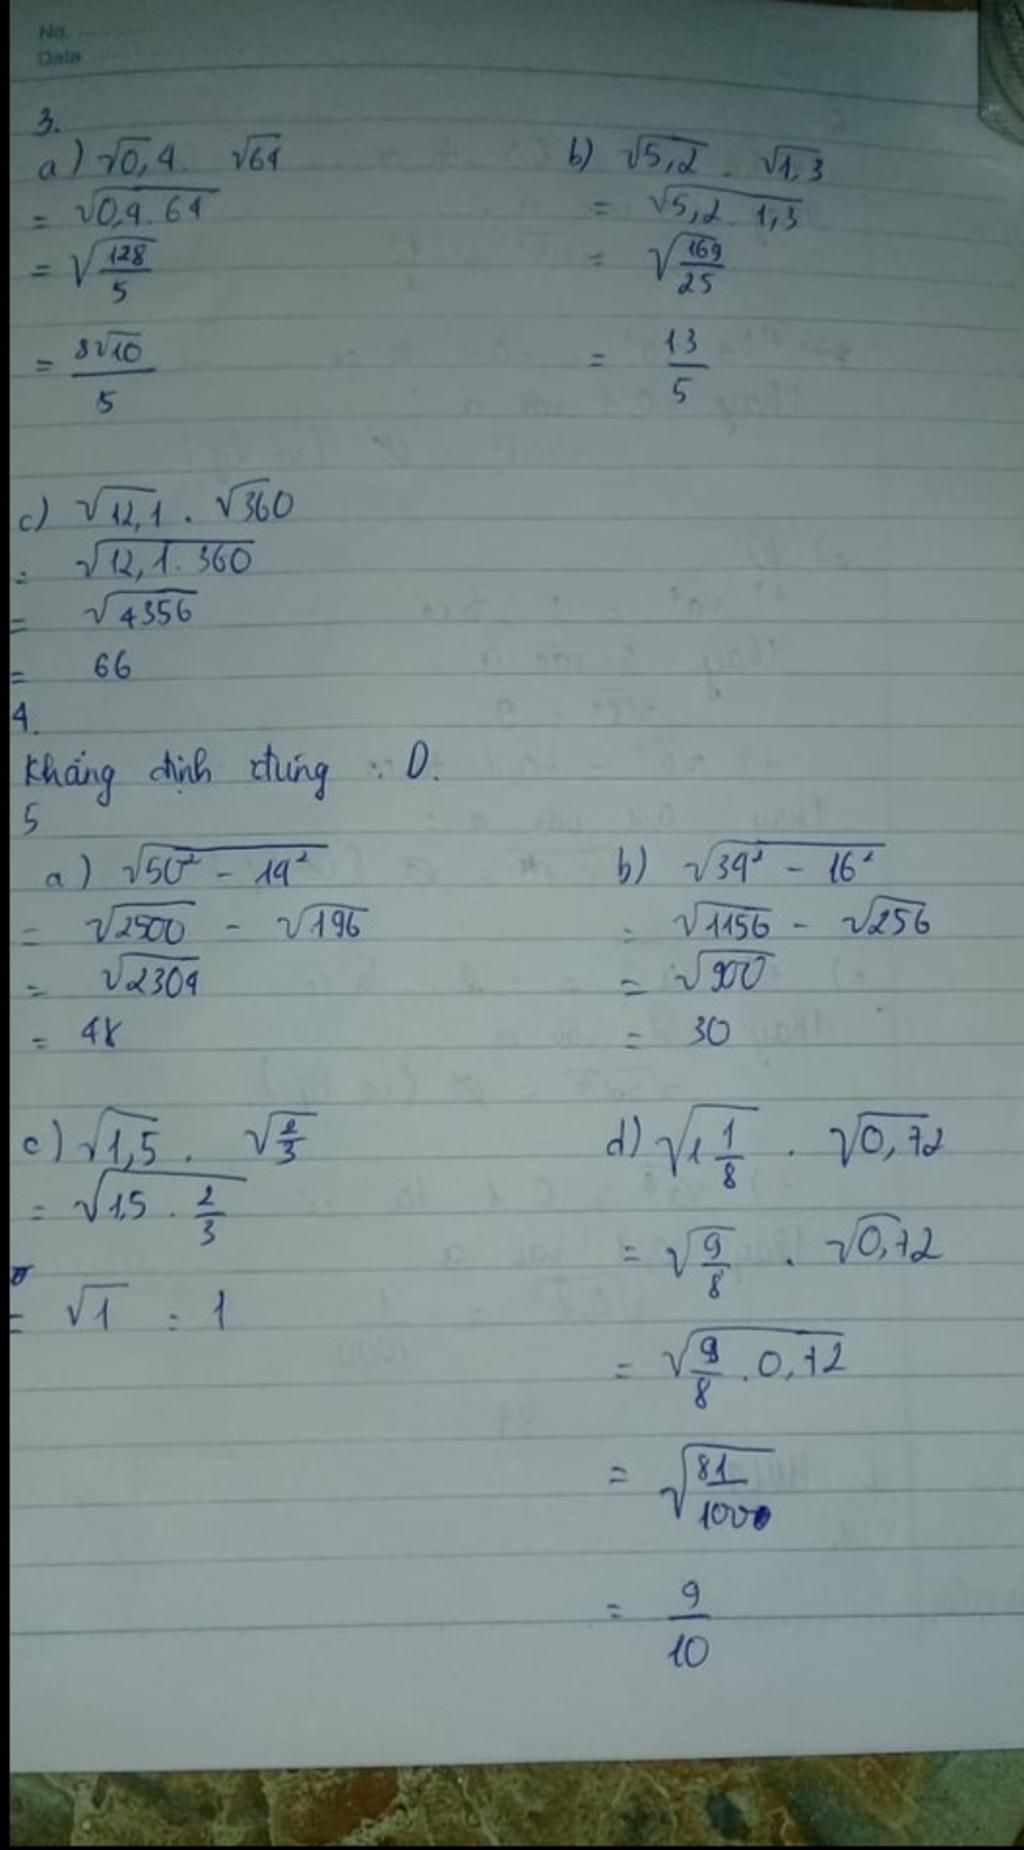 No.
Date
3.
a) √0,4 . √64
= √0,4 . 64
= √128/5
= 8√10/5
b) √5,2 . √1,3
= √5,2 . 1,3
= √169/25
= 13/5
c) √12,1 . √360
= √12,1 . 360
= √4356
= 66
4.
Khẳng định đúng : D.
5
a) √50² - 14²
= √2500 - √196
= √2304
= 48
b) √34² - 16²
= √1156 - √256
= √900
= 30
c) √1,5 . √2/3
= √1,5 . 2/3
= √1 = 1
d) √1 1/8 . √0,72
= √9/8 . √0,72
= √9/8 . 0,72
= √81/100
= 9/10